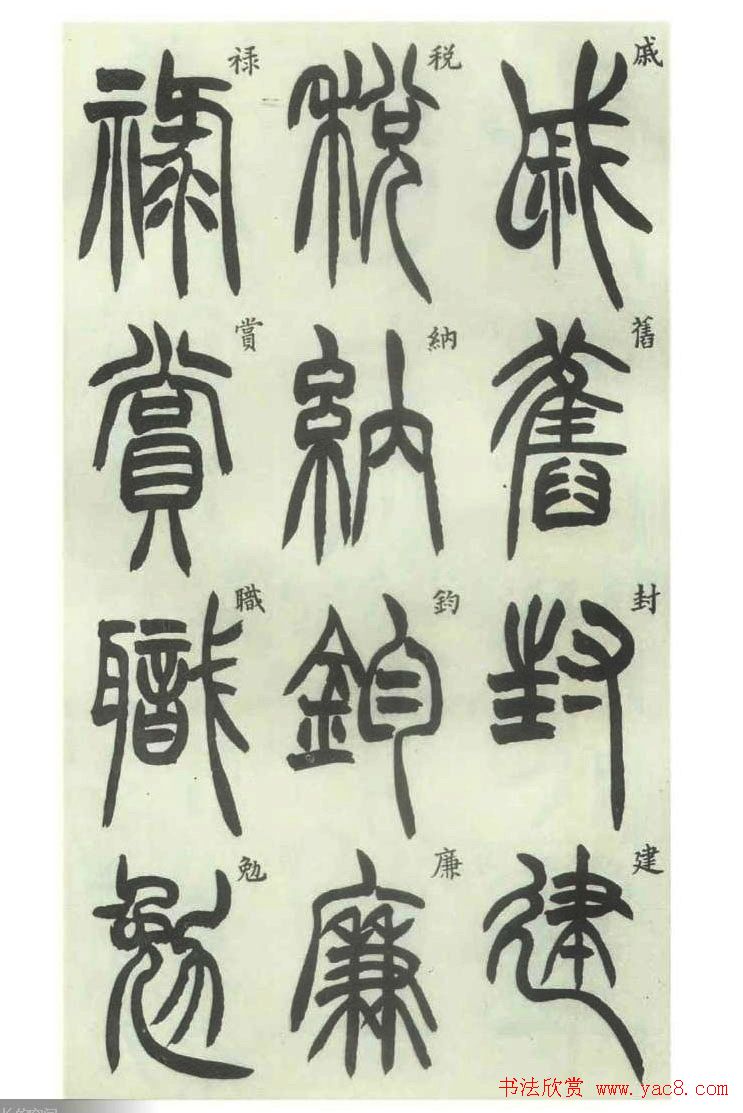 戚舊封建
税納鈞廉
禄賞職勉
书法欣赏 www.yac8.com